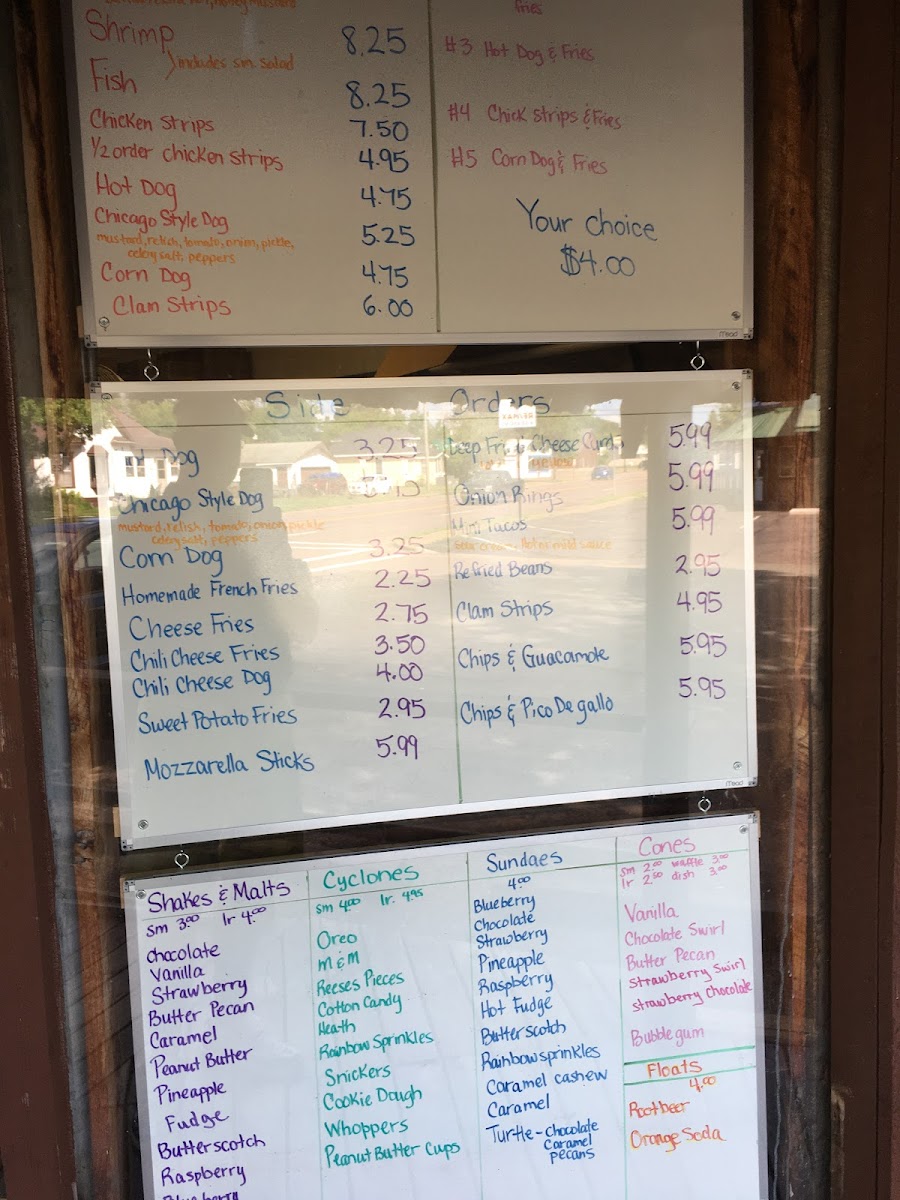 fries
Shrimp 8.25
includes sm. salad
Fish 8.25
Chicken Strips 7.50
1/2 order chicken strips 4.95
Hot Dog 4.75
Chicago Style Dog 5.25
mustard, relish, tomato, onion, pickle,
celery salt, peppers
Corn Dog 4.75
Clam Strips 6.00
#3 Hot Dog & Fries
#4 Chick Strips & Fries
#5 Corn Dog & Fries
Your choice
$4.00
mead
Side Orders
Dog 3.25
Chicago Style Dog
mustard, relish, tomato, onion, pickle
celery salt, peppers
Corn Dog 3.25
Homemade French Fries 2.25
Cheese Fries 2.75
Chili Cheese Fries 3.50
Chili Cheese Dog 4.00
Sweet Potato Fries 2.95
Mozzarella Sticks 5.99
Deep Fried Cheese Curds 5.99
Onion Rings 5.99
Mini Tacos 5.99
sour cream, hot or mild sauce
Refried Beans 2.95
Clam Strips 4.95
Chips & Guacamole 5.95
Chips & Pico De gallo 5.95
mead
Shakes & Malts
sm 3.00 lr 4.00
Chocolate
Vanilla
Strawberry
Butter Pecan
Caramel
Peanut Butter
Pineapple
Fudge
Butterscotch
Raspberry
Blueberry
Cyclones
sm 4.00 lr. 4.95
Oreo
M & M
Reeses Pieces
Cotton Candy
Heath
Rainbow Sprinkles
Snickers
Cookie Dough
Whoppers
Peanut Butter Cups
Sundaes
4.00
Blueberry
Chocolate
Strawberry
Pineapple
Raspberry
Hot Fudge
Butterscotch
Rainbow sprinkles
Caramel cashew
Caramel
Turtle - chocolate
Caramel
pecans
Cones
sm 2.00 waffle 3.00
lr 2.50 dish 3.00
Vanilla
Chocolate Swirl
Butter Pecan
Strawberry Swirl
strawberry chocolate
Bubblegum
Floats
4.00
Rootbeer
Orange Soda